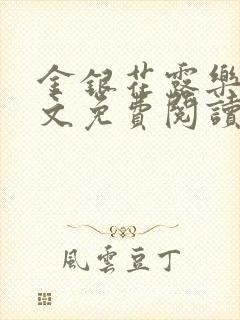 金銀花露樂
文免費閱讀
風雲豆丁